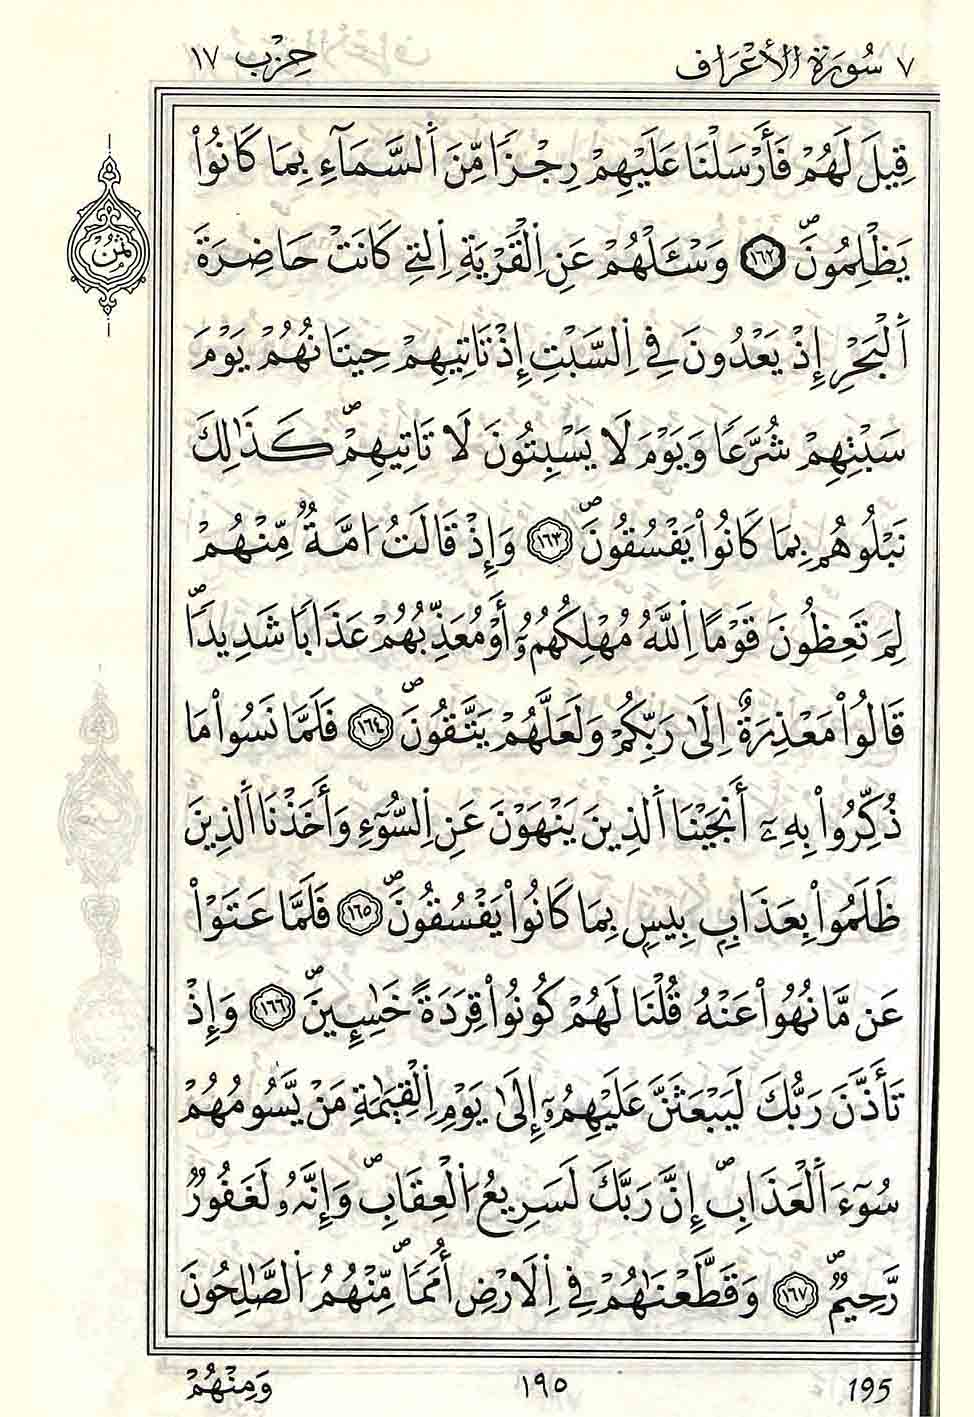 ٧ سُورَةُ الأَعْرَاف حِزْب ١٧
قِيلَ لَهُمْ فَأَرْسَلْنَا عَلَيْهِمْ رِجْزًا مِّنَ اَ۬لسَّمَآءِ بِمَا كَانُواْ
يَظْلِمُونَۖ ١٦٢ وَسْـَٔلْهُمْ عَنِ اِ۬لْقَرْيَةِ اِ۬لتِے كَانَتْ حَاضِرَةَ
اَ۬لْبَحْرِ إِذْ يَعْدُونَ فِے اِ۬لسَّبْتِ إِذْ تَاتِيهِمْ حِيتَانُهُمْ يَوْمَ
سَبْتِهِمْ شُرَّعًا وَيَوْمَ لَا يَسْبِتُونَ لَا تَاتِيهِمْۖ كَذَٰلِكَ
نَبْلُوهُم بِمَا كَانُواْ يَفْسُقُونَۖ ١٦٣ وَإِذْ قَالَتُ ا۟مَّةٌ مِّنْهُمْ
لِمَ تَعِظُونَ قَوْمًا اِ۬للَّهُ مُهْلِكُهُمُۥٓ أَوْ مُعَذِّبُهُمْ عَذَابًا شَدِيدًاۖ
قَالُواْ مَعْذِرَةٌ اِلَىٰ رَبِّكُمْ وَلَعَلَّهُمْ يَتَّقُونَۖ ١٦٤ فَلَمَّا نَسُواْ مَا
ذُكِّرُواْ بِهِۦٓ أَنجَيْنَا اَ۬لذِينَ يَنْهَوْنَ عَنِ اِ۬لسُّوٓءِ وَأَخَذْنَا اَ۬لذِينَ
ظَلَمُواْ بِعَذَابِۢ بِيسِۢ بِمَا كَانُواْ يَفْسُقُونَۖ ١٦٥ فَلَمَّا عَتَوْاْ
عَن مَّا نُهُواْ عَنْهُ قُلْنَا لَهُمْ كُونُواْ قِرَدَةً خَٰسِـِٕينَۖ ١٦٦ وَإِذْ
تَأَذَّنَ رَبُّكَ لَيَبْعَثَنَّ عَلَيْهِمُۥٓ إِلَىٰ يَوْمِ اِ۬لْقِيَٰمَةِ مَنْ يَّسُومُهُمْ
سُوٓءَ اَ۬لْعَذَابِۖ إِنَّ رَبَّكَ لَسَرِيعُ اُ۬لْعِقَابِۖ وَإِنَّهُۥ لَغَفُورٌ
رَّحِيمٌۖ ١٦٧ وَقَطَّعْنَٰهُمْ فِے اِ۬لَارْضِ أُمَمًاۖ مِّنْهُمُ اُ۬لصَّٰلِحُونَ
ثُمُنْ
وَمِنْهُمْ ١٩٥ 195